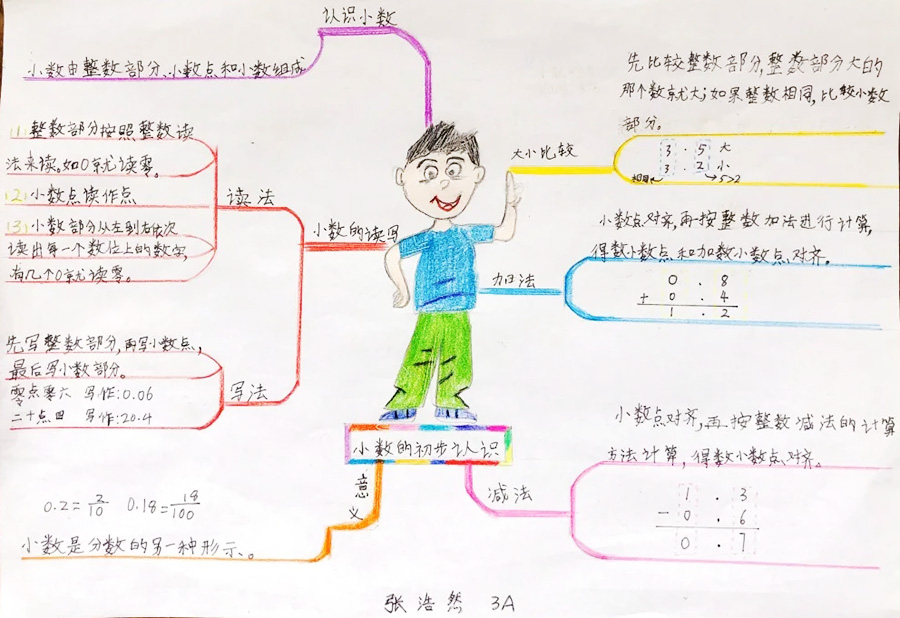 认识小数
小数由整数部分、小数点和小数组成
(1)整数部分按照整数读
法来读。如0就读零。
(2)小数点读作点
(3)小数部分从左到右依次
读出每一个数位上的数字,
有几个0就读零。
读法
小数的读写
先写整数部分,再写小数点,
最后写小数部分。
零点零六 写作:0.06
二十点四 写作:20.4
写法
小数的初步认识
意义
0.2=2/10 0.18=18/100
小数是分数的另一种形示。
先比较整数部分,整数部分大的
那个数就大;如果整数相同,比较小数
部分。
大小比较
3.5 大
3.2 小
相同 5>2
小数点对齐,再按整数加法进行计算,
得数小数点和加数小数点对齐。
加法
0.8
+ 0.4
1.2
小数点对齐,再按整数减法的计算
方法计算,得数小数点对齐。
减法
1.3
- 0.6
0.7
张浩然 3A